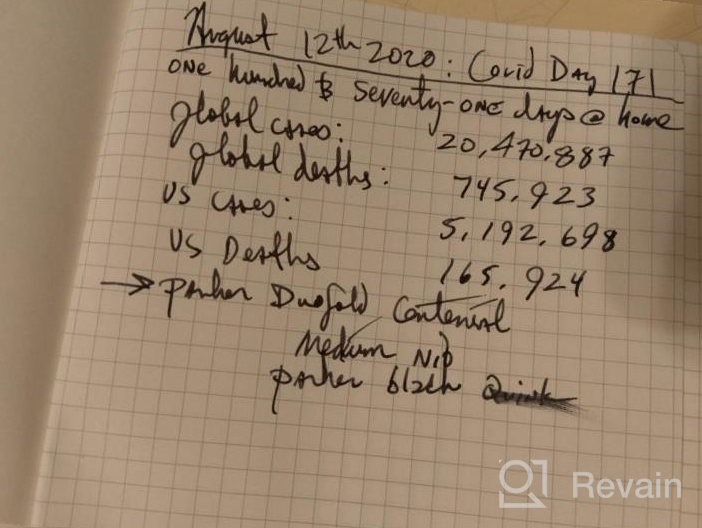 August 12th 2020: Covid Day 171
one hundred & seventy-one days @ home
global cases: 20,470,887
global deaths: 745,923
US Cases: 5,192,698
US Deaths 165,924
→ Parker Duofold Centennial
Medium Nib
Parker black Quink
Revain